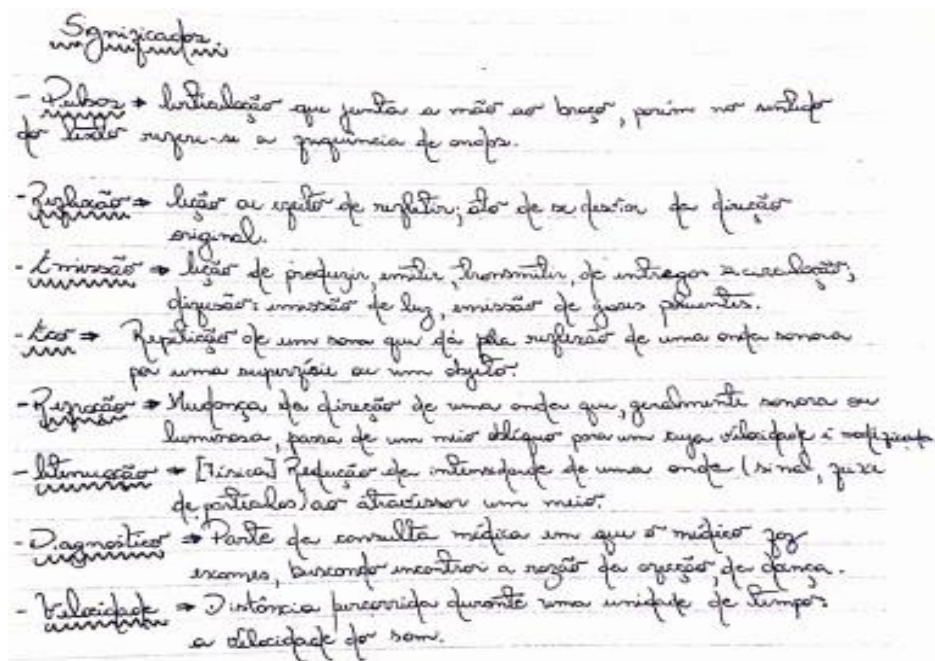 Significados
- Pulsos → Articulação que junta a mão ao braço, porém no sentido
do texto refere-se a frequência de ondas.
- Reflexão → Ação ou efeito de refletir; ato de se desviar da direção
original.
- Emissão → Ação de produzir, emitir, transmitir, de entregar à circulação;
difusão: emissão de luz, emissão de gases poluentes.
- Eco → Repetição de um som que dá pela reflexão de uma onda sonora
por uma superfície ou um objeto.
- Refração → Mudança da direção de uma onda que, geralmente sonora ou
luminosa, passa de um meio oblíquo para um cuja velocidade é modificada
- Atenuação → [Física] Redução da intensidade de uma onda (sinal, feixe
de partículas) ao atravessar um meio.
- Diagnóstico → Parte da consulta médica em que o médico faz
exames, buscando encontrar a razão da afecção, da doença.
- Velocidade → Distância percorrida durante uma unidade de tempo:
a velocidade do som.